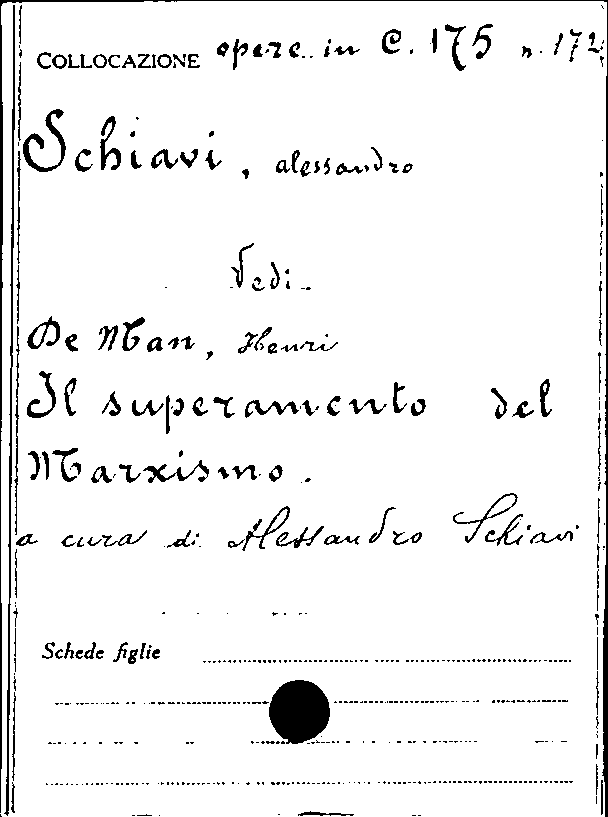 COLLOCAZIONE opere in C. 175 n. 172
Schiavi, Alessandro
Vedi
De Man, Henri
Il superamento del
Marxismo.
a cura di Alessandro Schiavi
Schede figlie